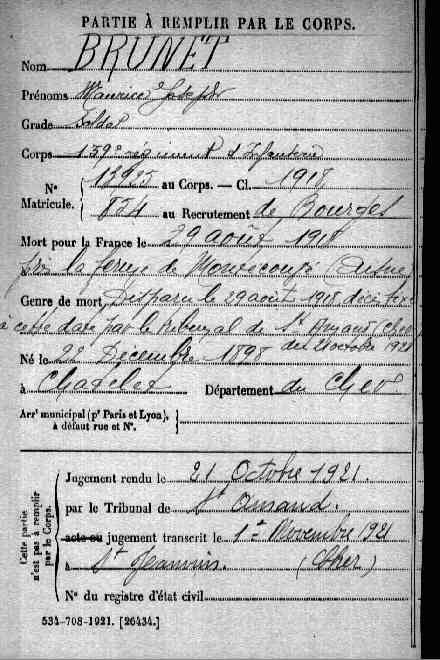 PARTIE À REMPLIR PAR LE CORPS.
Nom BRUNET
Prénoms Maurice Joseph
Grade Soldat
Corps 159e régiment d'Infanterie
N° Matricule. { au Corps. — Cl. 1918
854 au Recrutement de Bourges
Mort pour la France le 29 août 1918
la ferme de Aisne
Genre de mort Disparu le 29 août 1918 décès fixé
à cette date par le tribunal de St Amand Cher
du 21 octobre 1921
Né le 22 Décembre 1898
à Chatelet Département du Cher
Arrt municipal (pr Paris et Lyon),
à défaut rue et N°.
Cette partie
n'est pas à remplir
par le Corps.
Jugement rendu le 21 Octobre 1921.
par le Tribunal de St Amand.
acte ou jugement transcrit le 1er Novembre 1921
à St (Cher)
N° du registre d'état civil
534-708-1921. [26434.]